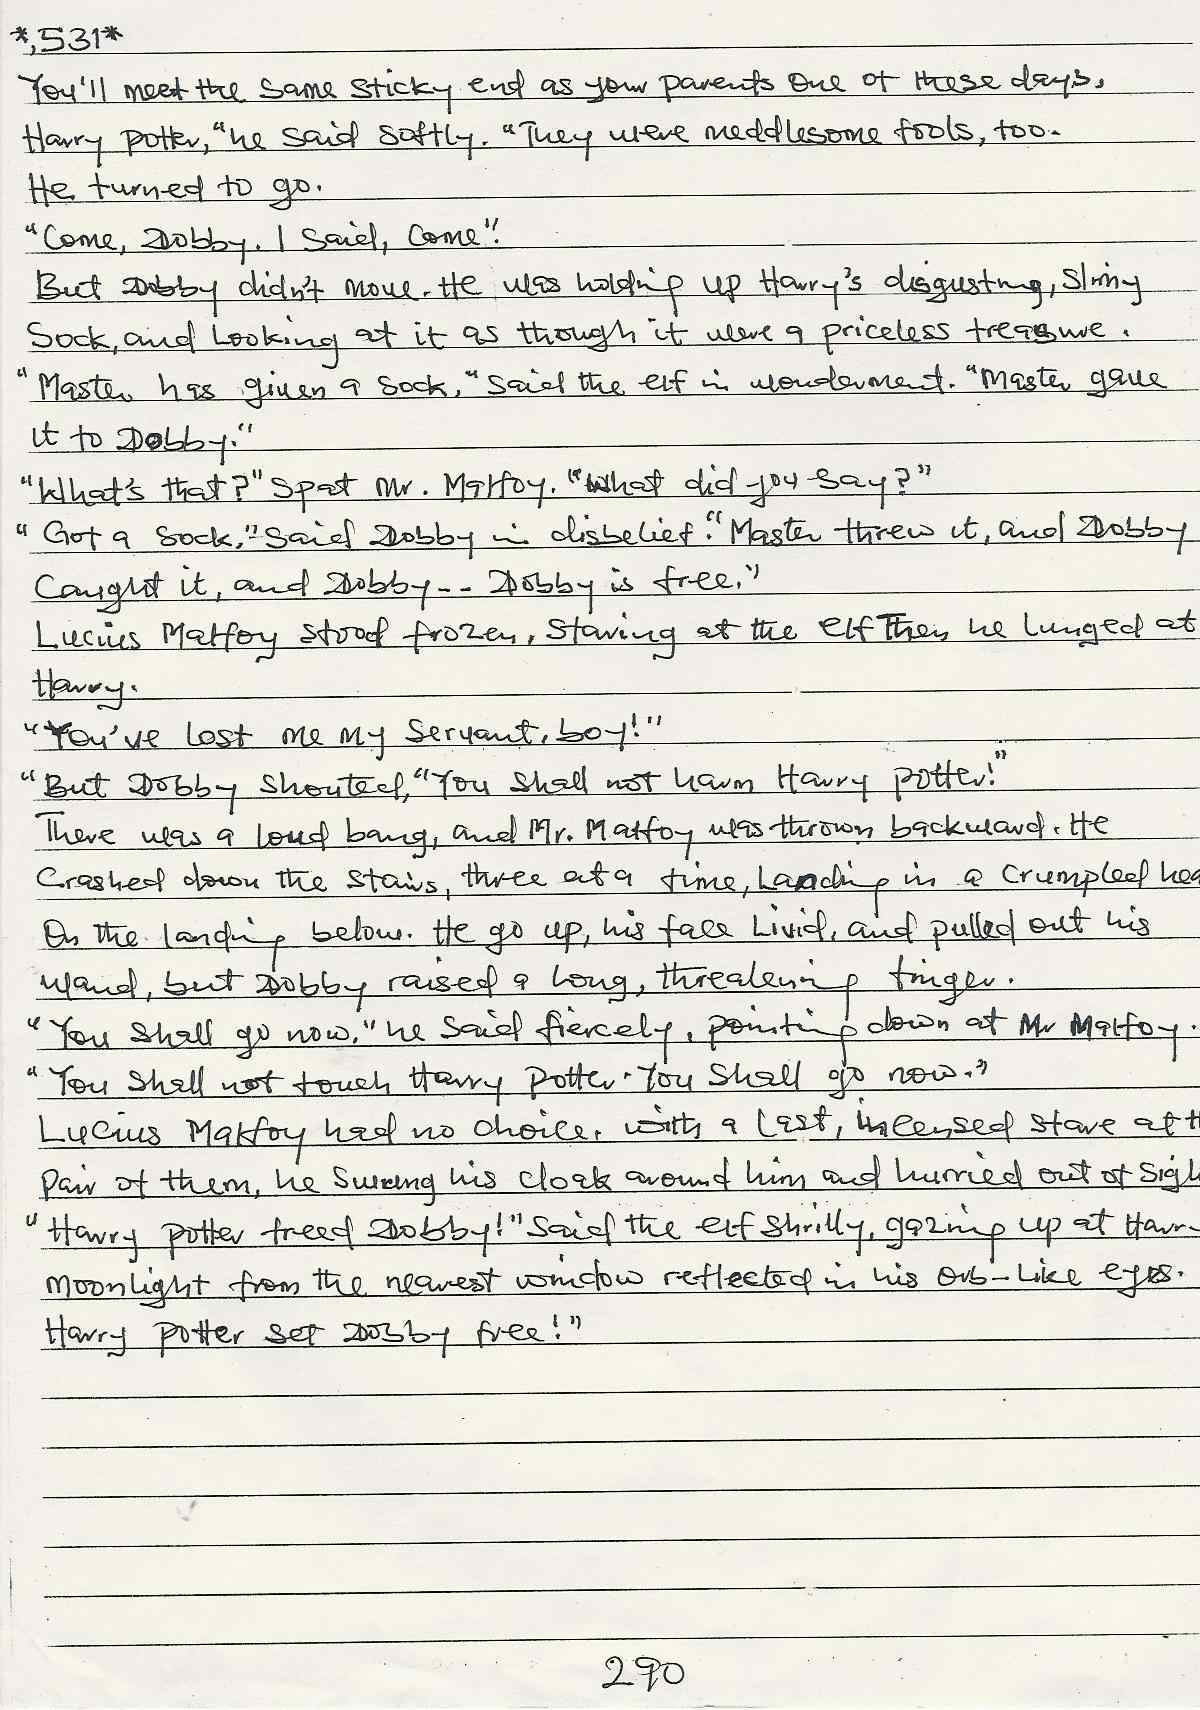 *,531*
You'll meet the same sticky end as your parents one of these days,
Harry potter, "he said softly. "They were meddlesome fools, too.
He turned to go.
"Come, Dobby. I said, come".
But Dobby didn't move. He was holding up Harry's disgusting, slimy
Sock, and Looking at it as though it were a priceless treasure.
"Master has given a sock, "said the elf in wonderment. "Master gave
it to Dobby."
"What's that?" spat Mr. Malfoy. "What did you say?"
"Got a sock," said Dobby in disbelief. "Master threw it, and Dobby
Caught it, and Dobby -- Dobby is free."
Lucius Malfoy stood frozen, staring at the elf Then he lunged at
Harry.
"You've lost me my servant, boy!"
"But Dobby shouted, "You shall not harm Harry potter!"
There was a loud bang, and Mr. Malfoy was thrown backward. He
Crashed down the stairs, three at a time, Landing in a Crumpled hea
On the landing below. He go up, his face Livid, and pulled out his
wand, but Dobby raised a Long, threatening finger.
"You shall go now," he said fiercely, pointing down at Mr Malfoy.
"You shall not touch Harry potter. You shall go now."
Lucius Malfoy had no choice. with a last, incensed stare at th
pair of them, he swung his cloak around him and hurried out of sigh
"Harry potter freed Dobby!" said the elf shrilly, gazing up at Harr
Moonlight from the nearest window reflected in his Orb-Like eyes.
Harry potter set Dobby free!"
290